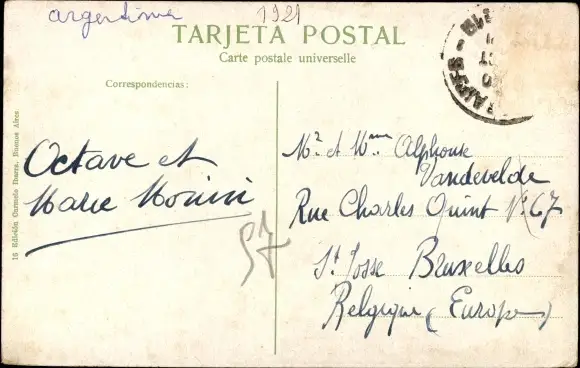 argentinie
1921
TARJETA POSTAL
Carte postale universelle
Correspondencias:
Octave et
Marie Monini
57
Mr et Mme Alphonse
Vandevelde
Rue Charles Quint No 67
St Josse Bruxelles
Belgique (Europe)